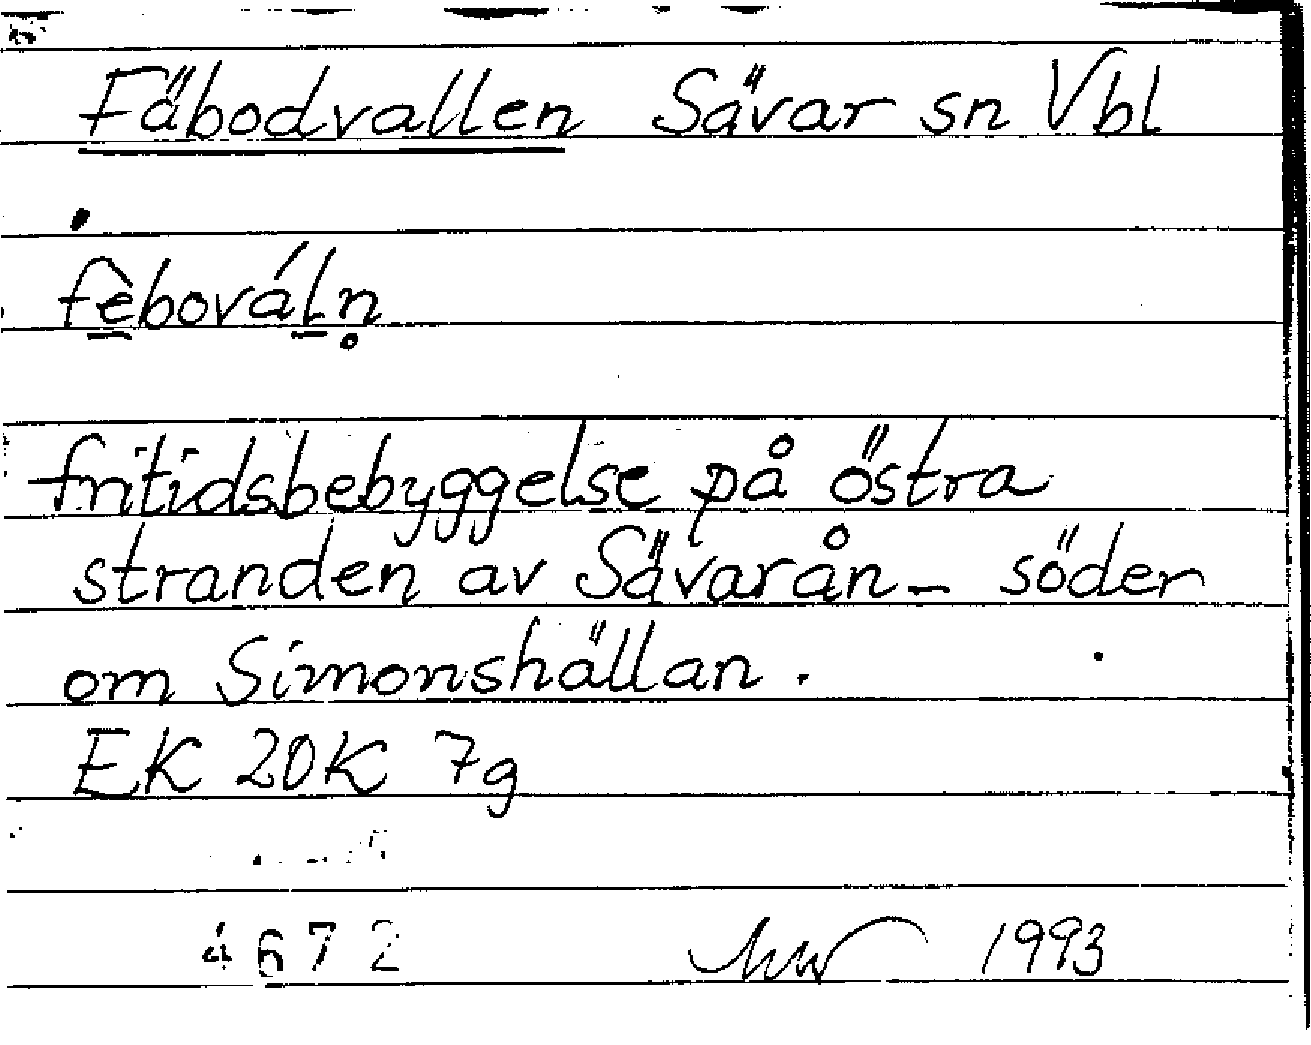 Fäbodvallen Sävar sn Vbl
fèbováln̥
fritidsbebyggelse på östra
stranden av Sävarån - söder
om Simonshällan.
EK 20K 7g
4672 1993